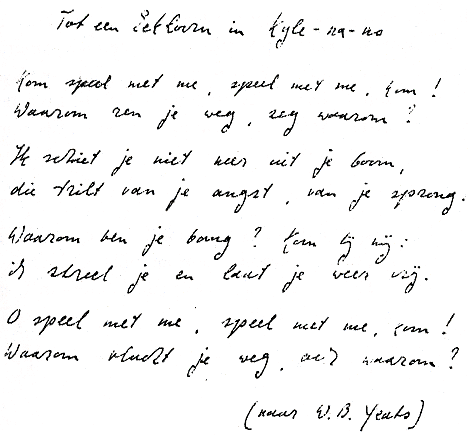 Tot een Eekhoorn in Kyle-na-no
Kom speel met me, speel met me, kom!
Waarom ren je weg, zeg waarom?
Ik schiet je niet neer uit je boom,
die trilt van je angst, van je sprong.
Waarom ben je bang? Kom bij mij:
ik streel je en laat je weer vrij.
O speel met me, speel met me, kom!
Waarom vlucht je weg, waarom?
(naar W.B. Yeats)